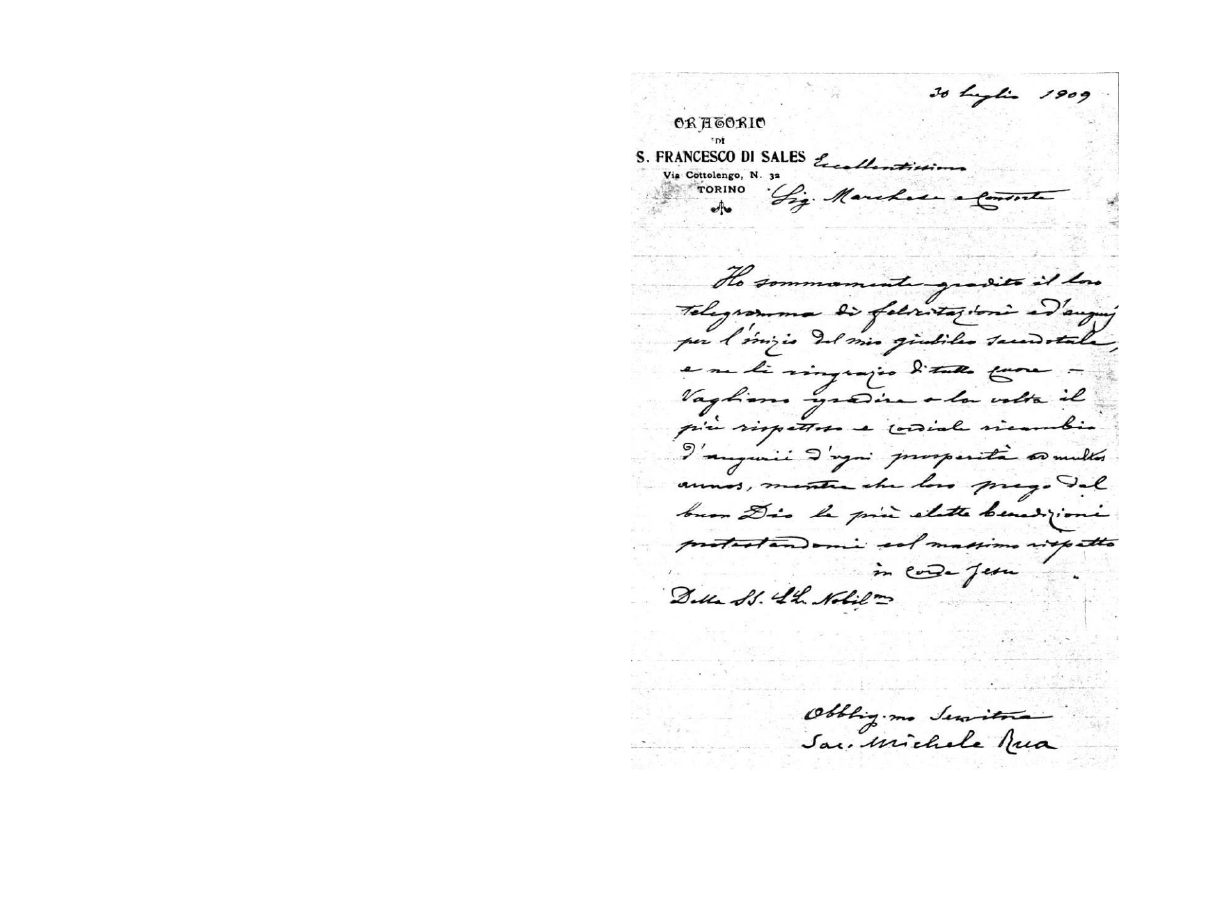 30 luglio 1909
ORATORIO
DI
S. FRANCESCO DI SALES
Via Cottolengo, N. 32
TORINO
Eccellentissimo
Sig. Marchese e Consorte
Ho sommamente gradito il loro
telegramma di felicitazioni ed'augurj
per l'inizio del mio giubileo sacerdotale,
e ne li ringrazio di tutto cuore –
Vogliano gradire a lor volta il
più rispettoso e cordiale ricambio
d'augurii d'ogni prosperità ad multos
annos, mentre che loro prego dal
buon Dio le più elette benedizioni
protestandomi col massimo rispetto
in Corde Jesu
Delle SS. LL. Nobilme
Obblig.mo Servitore
Sac. Michele Rua